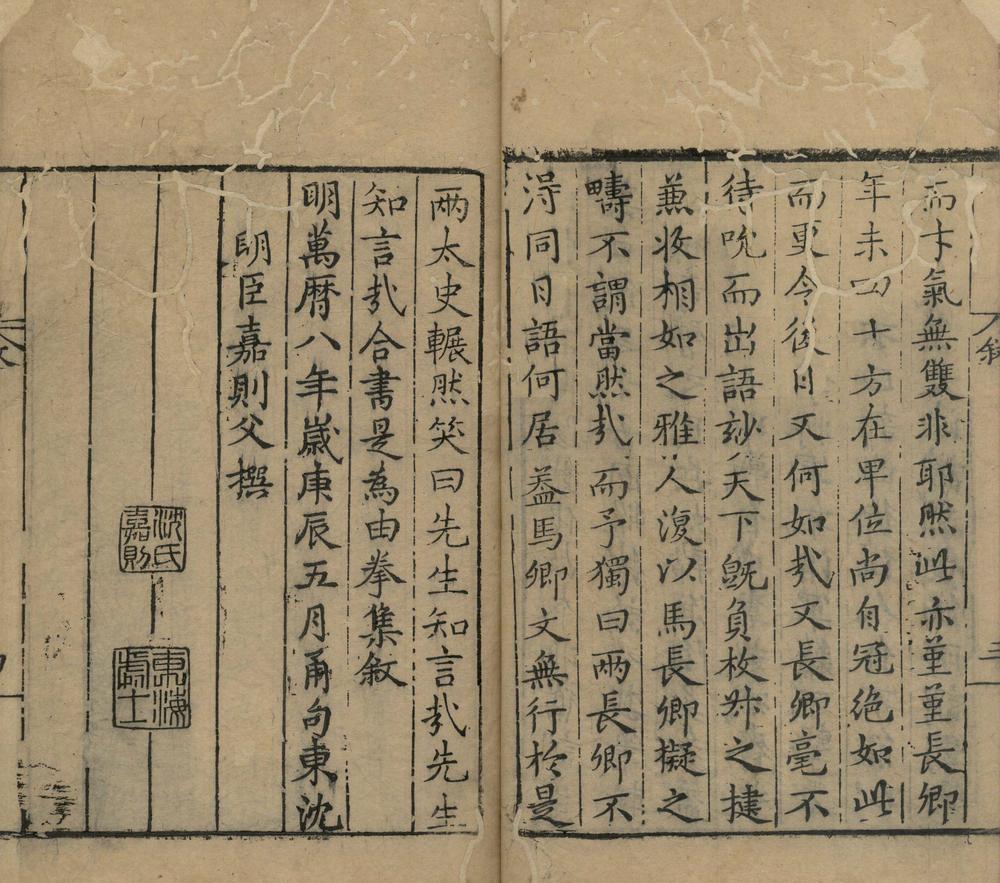 而才氣無雙非耶然此亦堇堇長卿
年未四十方在卑位尚自冠絶如此
而更令後日又何如㢤又長卿毫不
待吮而出語玅天下旣負枚叔之捷
兼收相如之雅人復以馬長卿擬之
疇不謂當然㢤而予獨曰兩長卿不
淂同日語何居葢馬卿文無行於是
兩太史囅然笑曰先生知言㢤先生
知言㢤合書是為由拳集敘
明萬曆八年歲庚辰五月甬句東沈
明臣嘉則父撰
沈氏嘉則
東海
敘
三